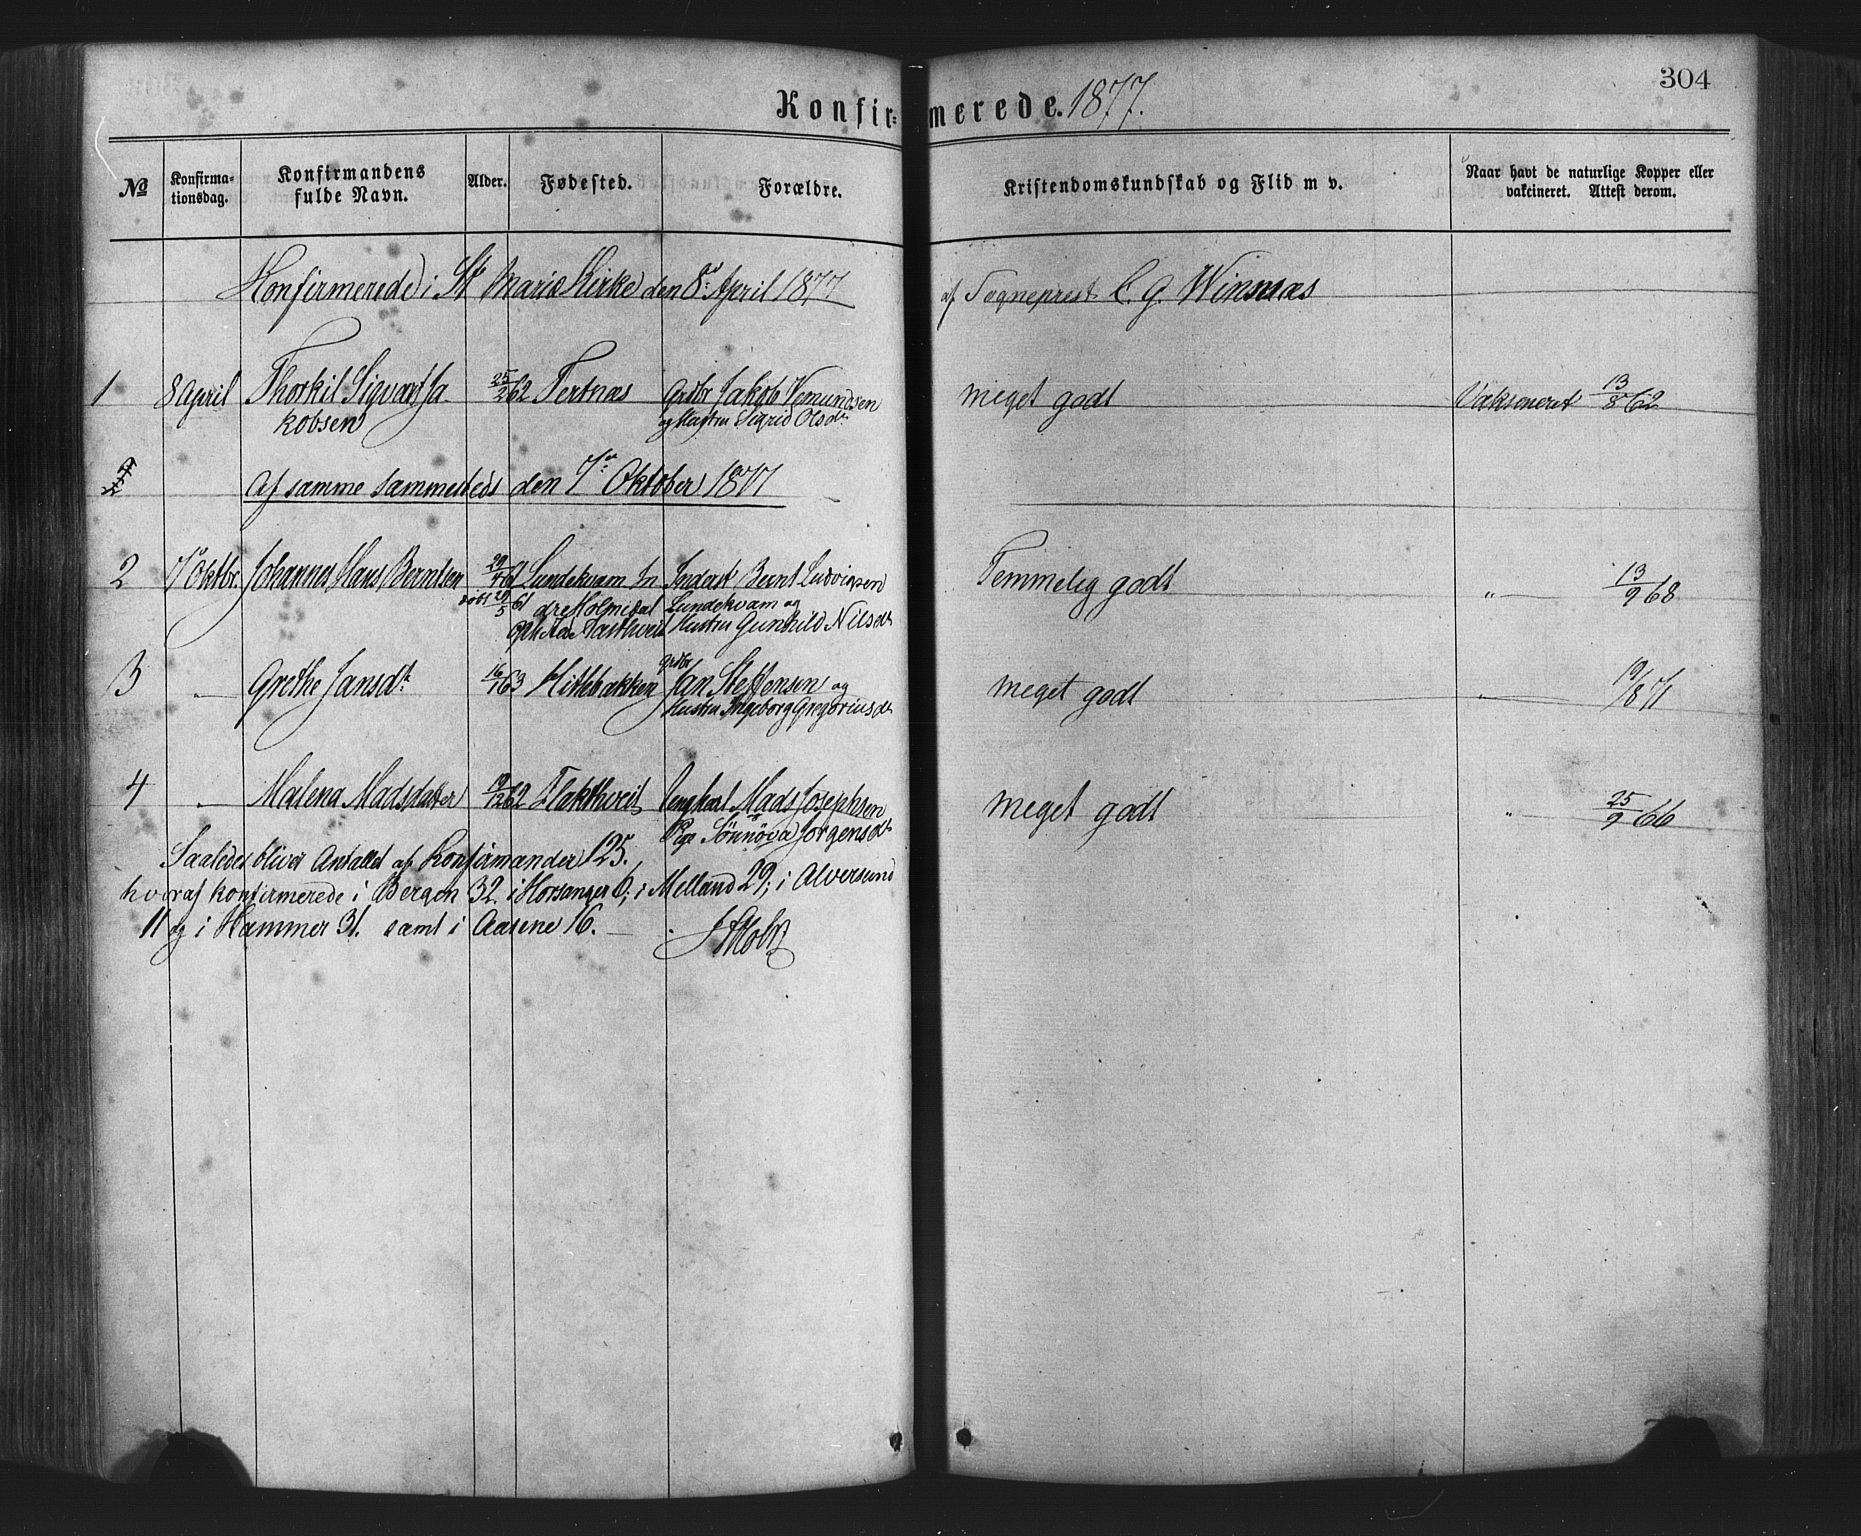 304
Konfirmerede. 1877.
No Konfirmationsdag. Konfirmandens fulde Navn. Alder. Fødested. Forældre. Kristendomskundskab og Flid m v. Naar havt de naturlige Kopper eller vakcineret. Attest derom.
Konfirmerede i St Maria Kirke den 8de April 1877 af Sogneprest C. G. Winsnæs
1 8 April Thorkil Sigvart Ja- 25/2 62 Tertnæs Grdbr Jakob Vemundsen meget godt Vaksineret 13/8 62
kobsen og Hustru Sigrid Olsdr
2
Af samme sammesteds den 7de Oktober 1877
2 7 Oktbr. Johannes Hans Berntsen 29/4 61 Lundekvam In Inderst Bernt Ludvigsen Temmelig godt " — 13/9 68
døbt 20/5 61 dre Holmedal Lundekvam og
Hustru Gunhild Nilsdt
3 — Grethe Jansdt 16/1 63 Hithbakken Grdbr Jan Steffensen og meget godt " — 19/8 71
Hustru Ingeborg Gregoriusdt
4 — Malena Madsdatter 19/12 62 Flaktveit Ungkarl Mads Josephsen meget godt " — 25/9 66
Pige Sønnøva Jørgensdt
Saaledes bliver Antallet af Konfirmander 125.
hvoraf konfirmerede i Bergen 32. i Horsanger 6; i Melland 29; i Alversund
11 og i Hammer 31. samt i Aasene 16. —